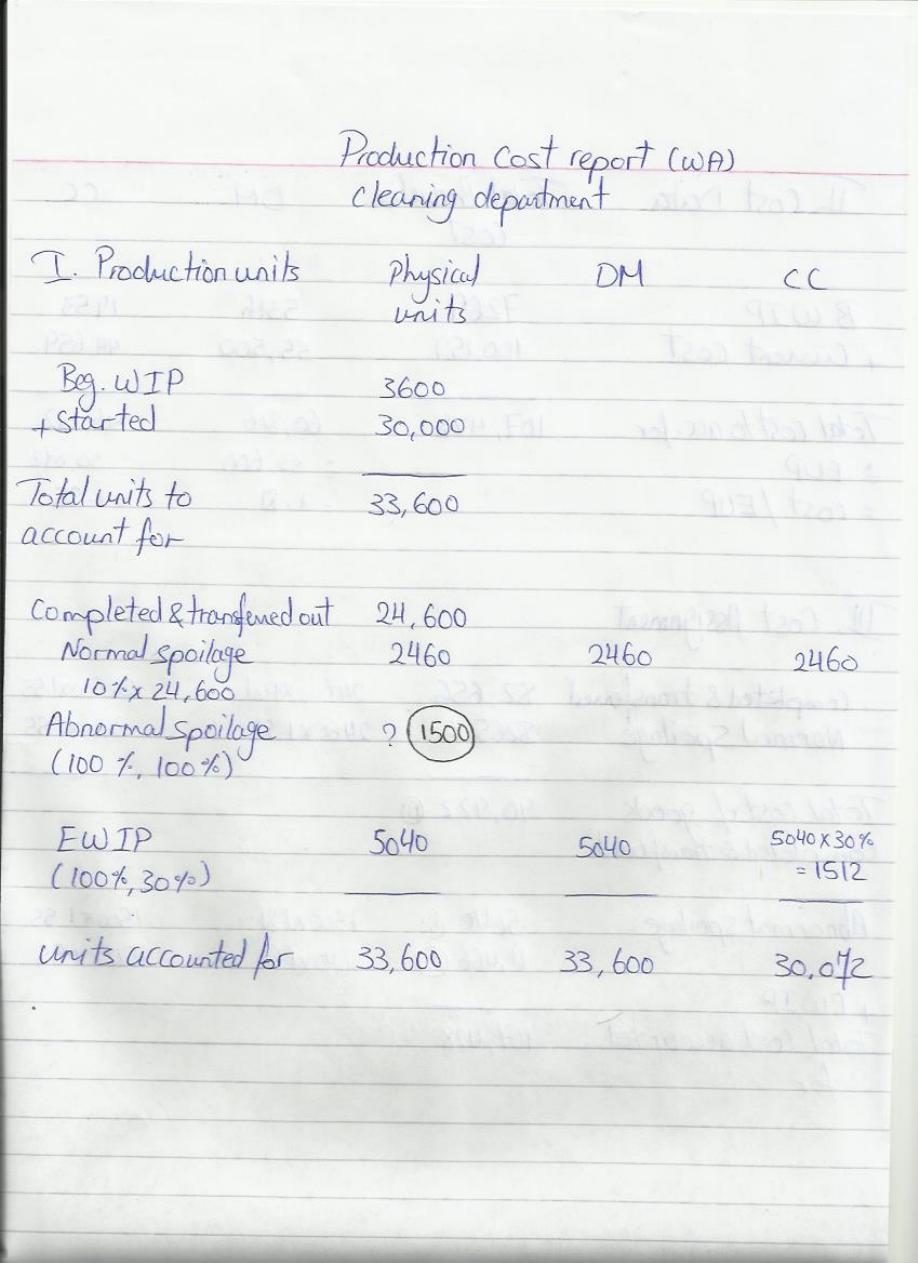 Production Cost report (WA)
Cleaning department
I. Production units Physical units DM CC
Beg. WIP 3600
+ Started 30,000
Total units to 33,600
account for
Completed & transferred out 24,600
Normal spoilage 2460 2460 2460
10% x 24,600
Abnormal spoilage ? 1500
(100%, 100%)
EWIP 5040 5040 5040 x 30%
(100%, 30%) = 1512
units accounted for 33,600 33,600 30,072